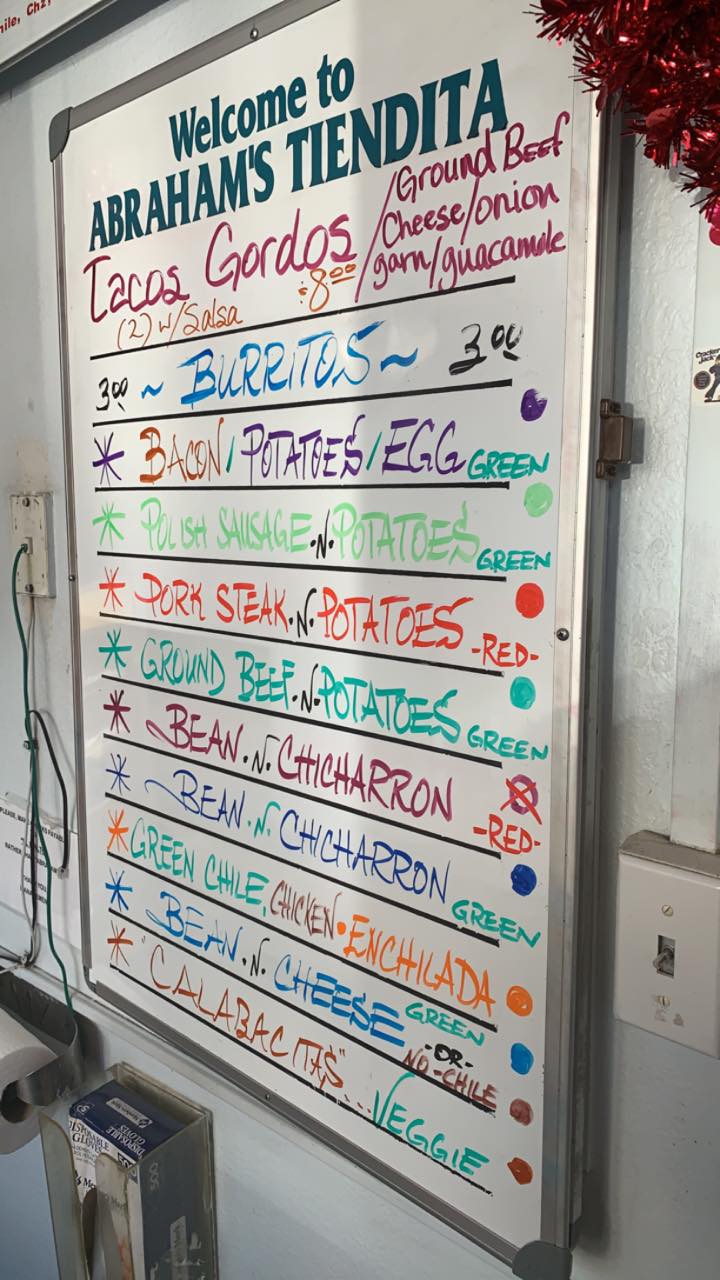 Welcome to
ABRAHAM'S TIENDITA
Tacos Gordos /Ground Beef
Cheese/onion
(2) w/Salsa 8.00 /garn/guacamole
3.00 ~ BURRITOS ~ 3.00
* BACON/POTATOES/EGG GREEN
* POLISH SAUSAGE .N. POTATOES GREEN
* PORK STEAK .N. POTATOES -RED-
* GROUND BEEF .N. POTATOES GREEN
* BEAN .N. CHICHARRON -RED-
* BEAN .N. CHICHARRON GREEN
* GREEN CHILE, CHICKEN • ENCHILADA
* BEAN .N. CHEESE GREEN
-OR-
NO-CHILE
* "CALABACITAS" ...VEGGIE
DISPOSABLE
GLOVES
Cracker
Jack